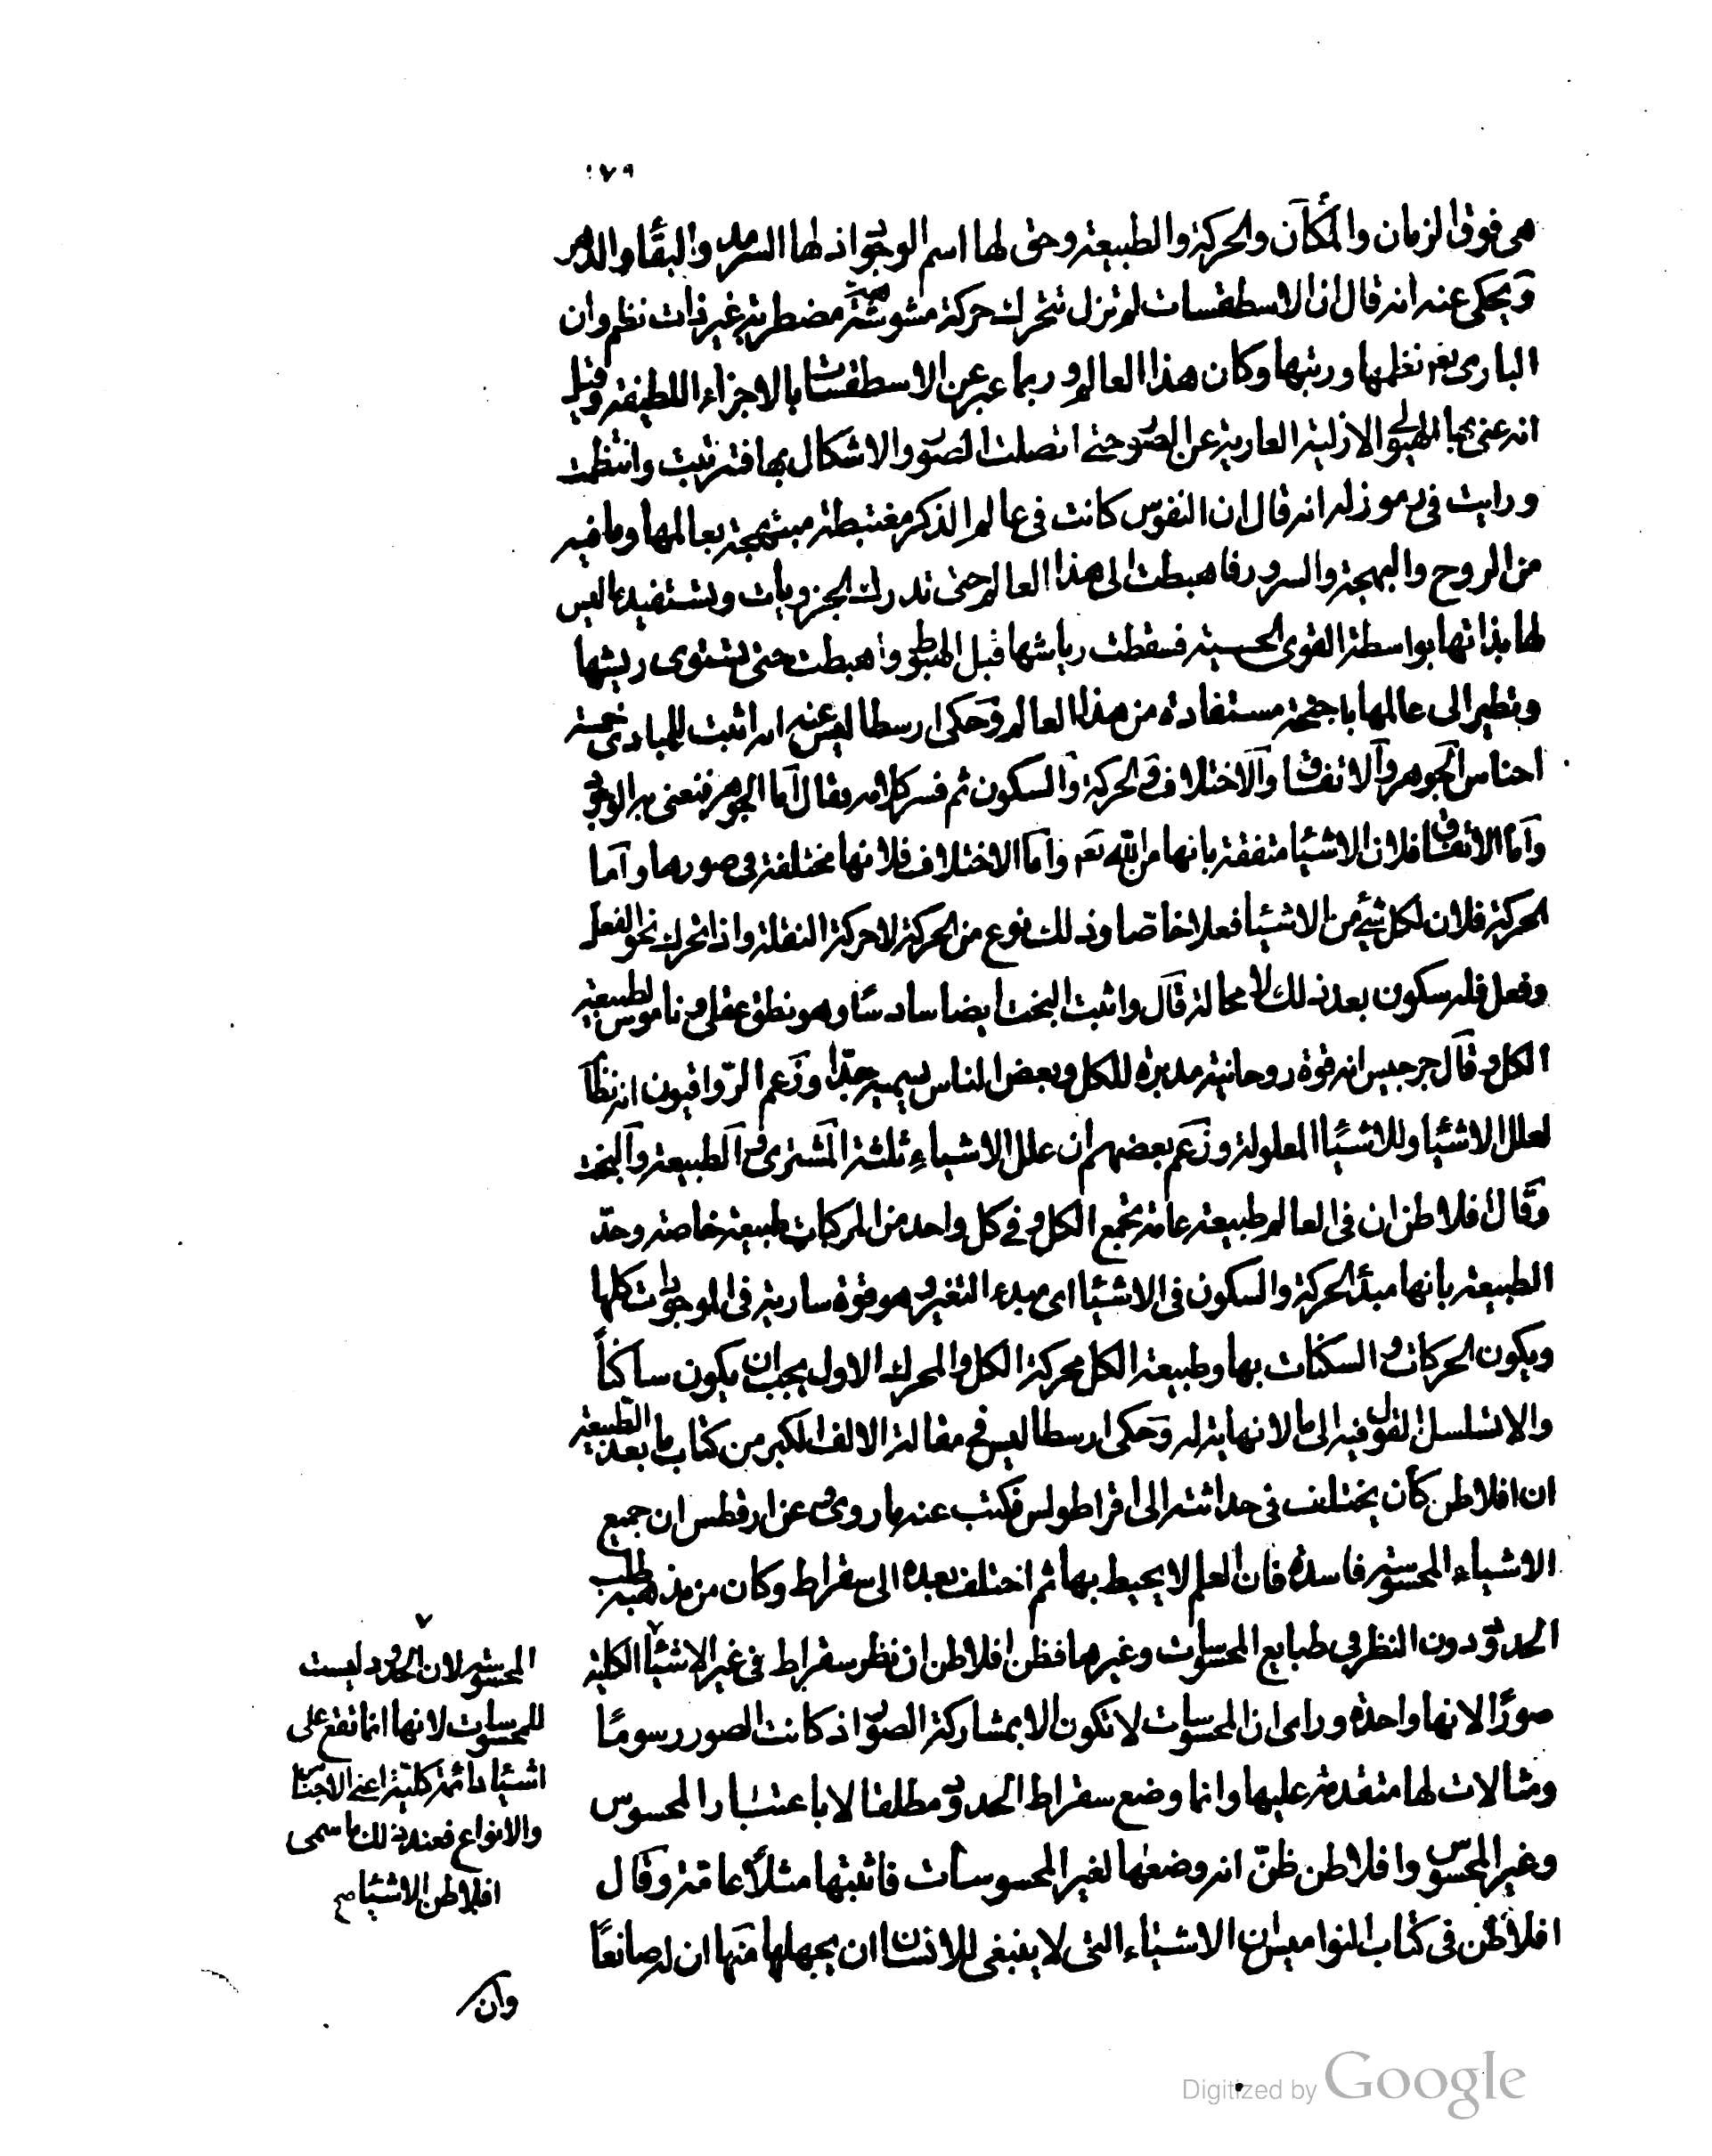 ١٧٩
هى فوق الزمان والمكان والحركة والطبيعة وحق لها اسم الوجود اذ لها السرمد والبقاء والدهر
ويحكى عنه انه قال ان الاسطقسات لم تزل تتحرك حركة مشوشة مضطربة غير ذات نظم وان
البارى تعم نظمها ورتبها وكان هذا العالم وربما عبر عن الاسطقسات بالاجزاء اللطيفة وقيل
انه عنى بها الهيولى الازلية العارية عن الصور حتى اتصلت الصور والاشكال بها فترتبت وانتظمت
ورايت فى رموز له انه قال ان النفوس كانت فى عالم الذكر مغتبطة مبتهجة بعالمها وما فيه
من الروح والبهجة والسرور فاهبطت الى هذا العالم حتى تدرك الجزويات وتستفيد ما ليس
لها بذاتها بواسطة القوى الحسية فسقطت رياشها قبل الهبوط واهبطت حتى يستوى ريشها
وتطير الى عالمها باجنحة مستفادة من هذا العالم وحكى ارسطاليس عنه انه اثبت للمبادى خمسة
اجناس الجوهر والاتفاق والاختلاف والحركة والسكون ثم فسر كلامه فقال اما الجوهر فنعنى به الوجود
واما الاتفاق فلان الاشيا متفقة بانها من الله تعم واما الاختلاف فلانها مختلفة فى صورها واما
الحركة فلان لكل شئ من الاشيا فعلا خاصا وذلك نوع من الحركة لا حركة النقلة واذا تحرك نحو الفعل
وفعل فله سكون بعد ذلك لا محالة قال واثبت البخت ايضا سادسا وهو نطق عقلى وناموس لطبيعة
الكل وقال جرجيس انه قوة روحانية مدبرة للكل وبعض الناس يسميه جدا وزعم الرواقيون انه نظام
لعلل الاشيا وللاشيا المعلولة وزعم بعضهم ان علل الاشياء ثلثة المشترى والطبيعة والبخت
وقال افلاطن ان فى العالم طبيعة عامة تجمع الكل وفى كل واحد من المركبات طبيعة خاصة وحد
الطبيعة بانها مبدأ الحركة والسكون فى الاشيا اى مبدء التغير وهو قوة سارية فى الموجودات كلها
ويكون الحركات والسكنات بها وطبيعة الكل محركة الكل والمحرك الاول يجب ان يكون ساكناً
والا تسلسل القول فيه الى ما لا نهاية له وحكى ارسطاليس فى مقالة الالف الكبر من كتاب ما بعد الطبيعة
ان افلاطن كان يختلف فى حداثته الى اقراطولس فكتب عنه ما روى عن ارقطس ان جميع
الاشياء المحسوسة فاسدة فان العلم لا يحيط بها ثم اختلف بعده الى سقراط وكان من مذهبه طلب
الحدود دون النظر فى طبايع المحسوسات وغيرها فظن افلاطن ان نظر سقراط فى غير الاشيا الكلية
صورًا لانها واحدة وراى ان المحسوسات لا تكون الا بمشاركة الصور اذ كانت الصور رسومًا
ومثالات لها متقدمة عليها وانما وضع سقراط الحدود مطلقا لا باعتبار المحسوس
وغير المحسوس وافلاطن ظنّ انه وضعها لغير المحسوسات فاثبتها مثلاً عامة وقال
افلاطن فى كتاب النواميس ان الاشياء التى لا ينبغى للانسان ان يجهلها منها ان له صانعًا
وان
٧
المحسوسة لان الحدود ليست
للمحسوسات لانها انما تقع على
اشيا دائمة كلية اعنى الاجناس
والانواع فعند ذلك ما سمى
افلاطن الاشيا صح
Digitized by Google